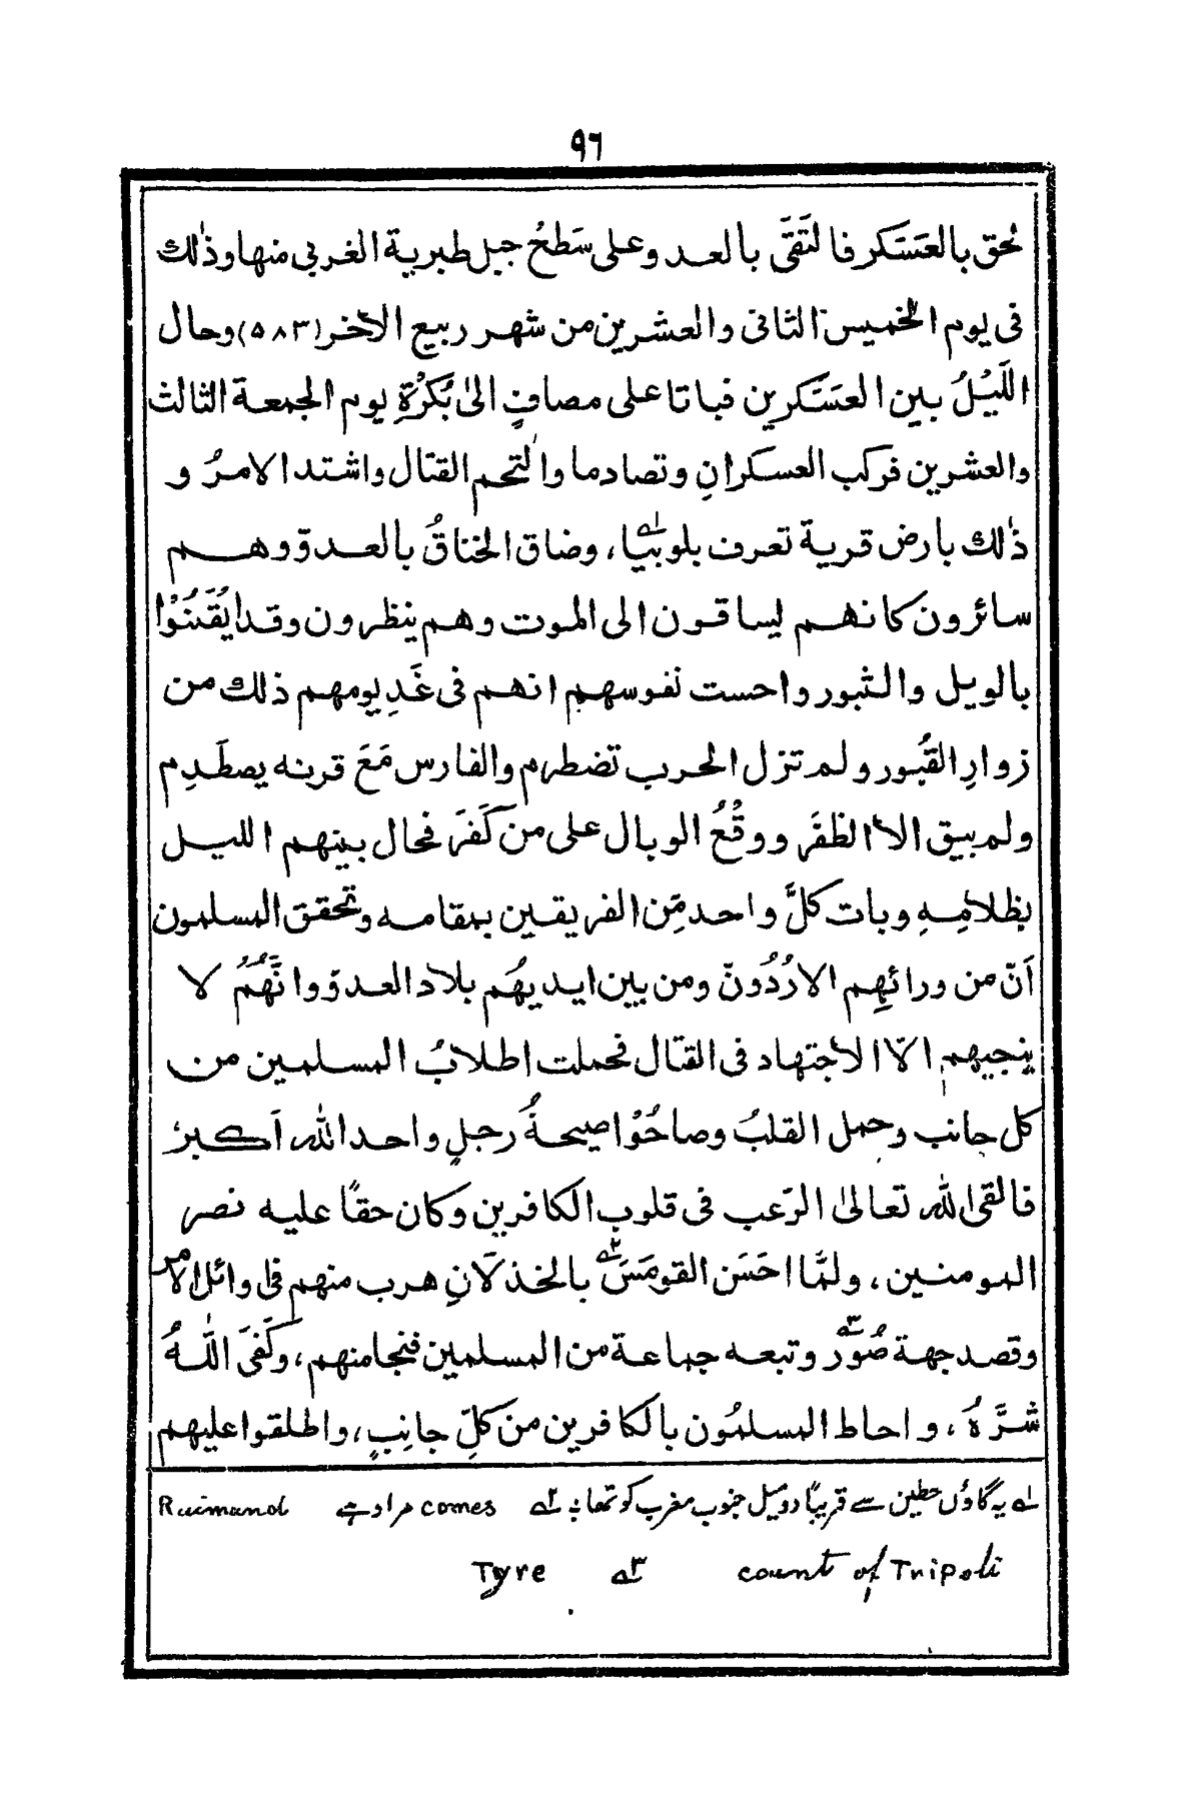 ٩٦
لحق بالعَسَكر فالتَقَى بالعدو وعلى سَطحُ جبل طبرية الغربي منها وذٰلك
فى يوم الخميس الثانى والعشرين من شهر ربيع الآخر (٥٨٣) وحال
اللَيْلُ بين العسَكرين فباتا على مصافٍ الىٰ بُكرْةِ يوم الجمعة الثالث
والعشرين فركب العسكرانِ وتصادما والتحم القتال واشتد الامرُ و
ذٰلك بارض قرية تعرف بلوبيا ١ـه، وضاق الخناقُ بالعدوّ وهم
سائرون كانهم ليساقون الى الموت وهم ينظرون وقد ايُقَنُوْا
بالويل والثبور واحست نفوسهم انهم فى غَدِ يومهم ذلك من
زوارِ القبُور ولم تزل الحرب تضطرم والفارس مَعَ قرنه يصطَدِم
ولم يبق الا الظفَر ووقْعُ الوبال على من كَفَرَ فحال بينهم الليل
بظلامِهِ وبات كلَّ واحد مِّن الفريقين بمقامه وتحقق المسلمون
اَنّ من ورائهِم الارُدُونّ ومن بين ايديهُم بلاد العدوّ وانَّهُمُ لا
ينجيهم الّا الاجتهاد فى القتال فحملت اطلابُ المسلمين من
كل جانب وحمل القلبُ وصاحُوْا صيحةُ رجلٍ واحد الله اَكبرُ
فالقى الله تعالىٰ الرّعب فى قلوب الكافرين وكان حقًا عليه نصر
المومنين، ولمَّا احَسَن القومَسَ ٢ـه بالخذلَانِ هرب منهم فى اوائل الامر
وقصد جهة صُوَّر ٣ـه وتبعه جماعة من المسلمين فنجا منهم، وكَفىَ اللّٰهُ
شرَّهُ، واحاط المسلمُون بالكافرين منَ كلِّ جانِبٍ، واطلقوا عليهم
١ـه یہ گاؤں حطین سے قریبًا دو میل جنوب مغرب کو تھا ٢ـه comes مراد ہے Raimund
count of Tripoli ٣ـه Tyre